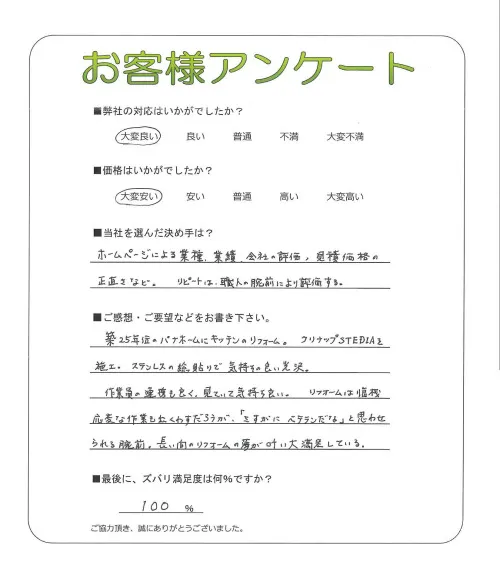 お客様アンケート
■弊社の対応はいかがでしたか？
大変良い 良い 普通 不満 大変不満
■価格はいかがでしたか？
大変安い 安い 普通 高い 大変高い
■当社を選んだ決め手は？
ホームページによる業種、業績、会社の評価、見積価格の
正直さなど。 リピートは、職人の腕前により評価する。
■ご感想・ご要望などをお書き下さい。
築25年位のパナホームにキッチンのリフォーム。 クリナップSTEDIAを
施工。ステンレスの総貼りで気持ちの良い光沢。
作業員の連携も良く、見ていて気持ち良い。 リフォームは臨機
応変な作業も多くわずだろうが、「さすがにベテランだな」と思わせ
られる腕前。長い間のリフォームの夢が叶い大満足している。
■最後に、ズバリ満足度は何％ですか？
100 ％
ご協力頂き、誠にありがとうございました。